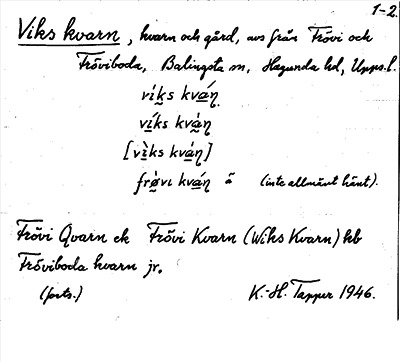 1-2.
Viks kvarn, kvarn och gård, avs från Frövi och
Fröviboda, Balingsta sn, Hagunda hd, Upps. l.
víks kvá̱ꞃ
ví̱ks kvà̱ꞃ
[vì̱ks kvá̱ꞃ]
frø̱̀vı kvá̱ꞃ ä (inte allmänt känt).
Frövi Qvarn ek Frövi Kvarn (Wiks Kvarn) hb
Fröviboda kvarn jr.
(forts.) K.-H. Tapper 1946.